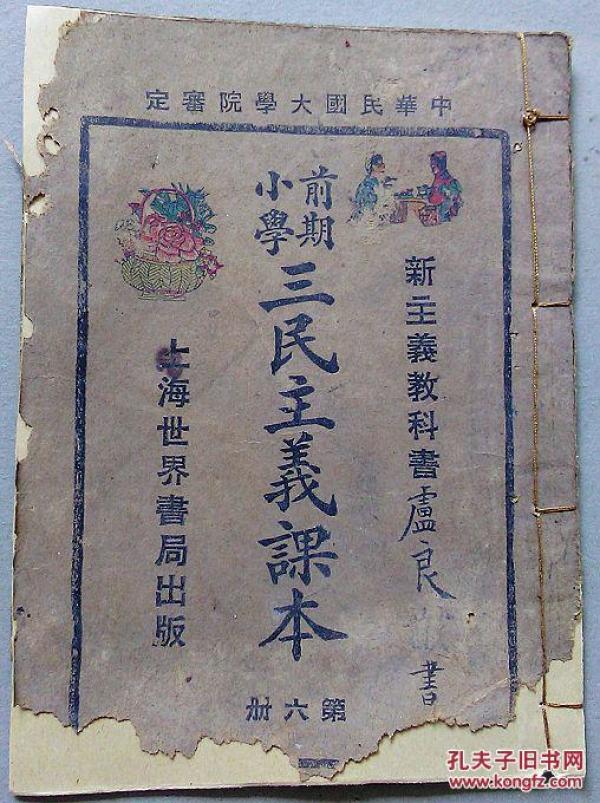 中華民國大學院審定
新主義教科書
盧良書
前期
小學
三民主義課本
上海世界書局出版
第六册
孔夫子旧书网
www.kongfz.com